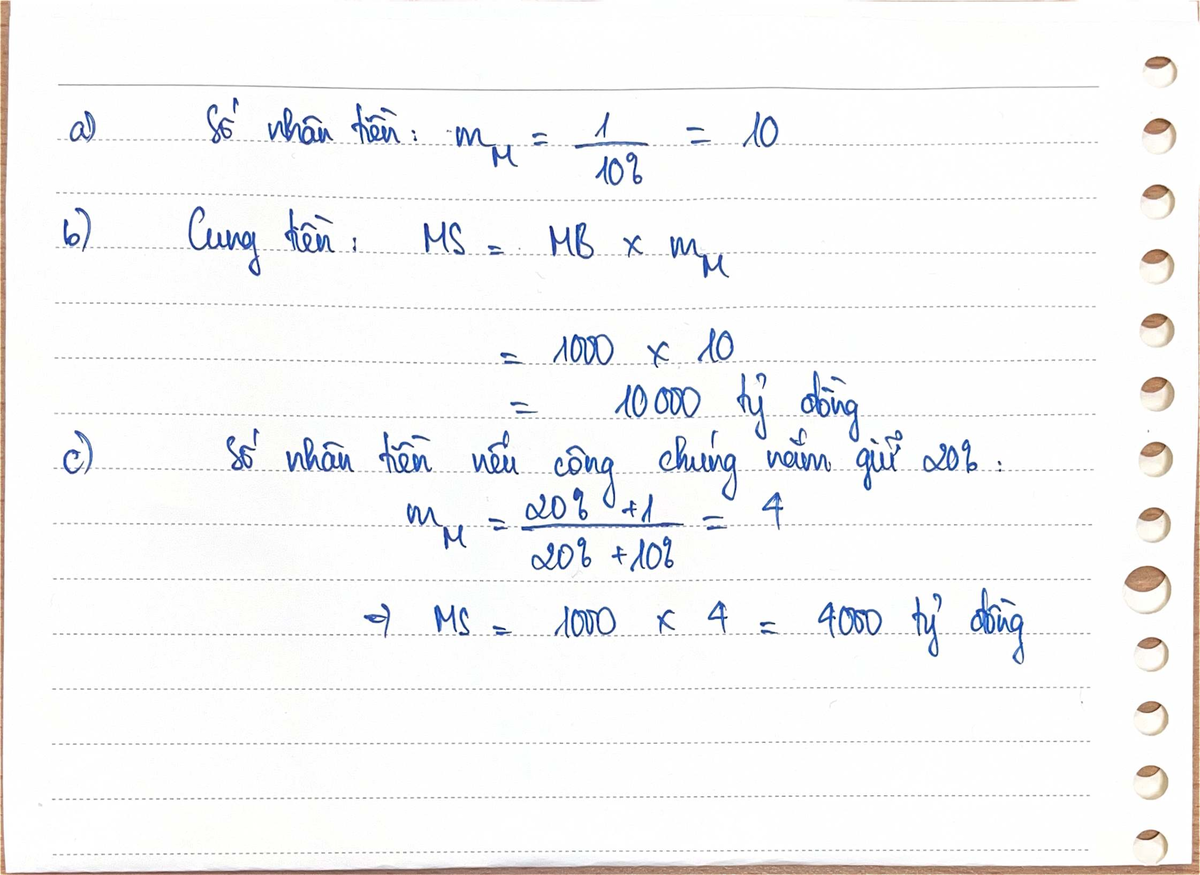 a) Số nhân tiền: m_M = 1/10% = 10
b) Cung tiền: MS = MB x m_M
= 1000 x 10
= 10000 tỷ đồng
c) Số nhân tiền nếu công chúng nắm giữ 20%:
m_M = (20% + 1)/(20% + 10%) = 4
→ MS = 1000 x 4 = 4000 tỷ đồng